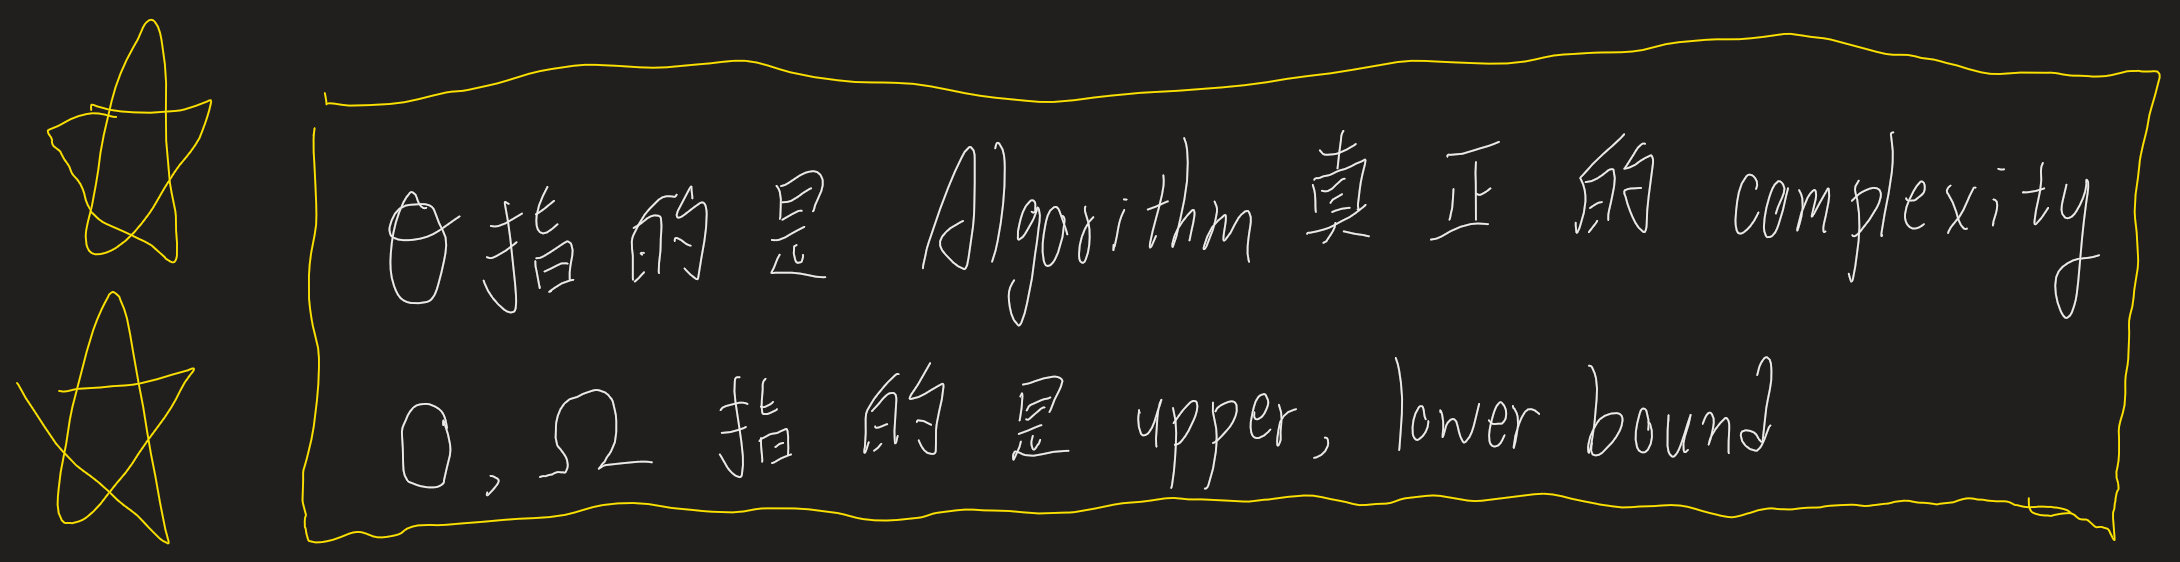 Θ指的是 Algorithm 真正的 complexity
O, Ω 指的是 upper, lower bound